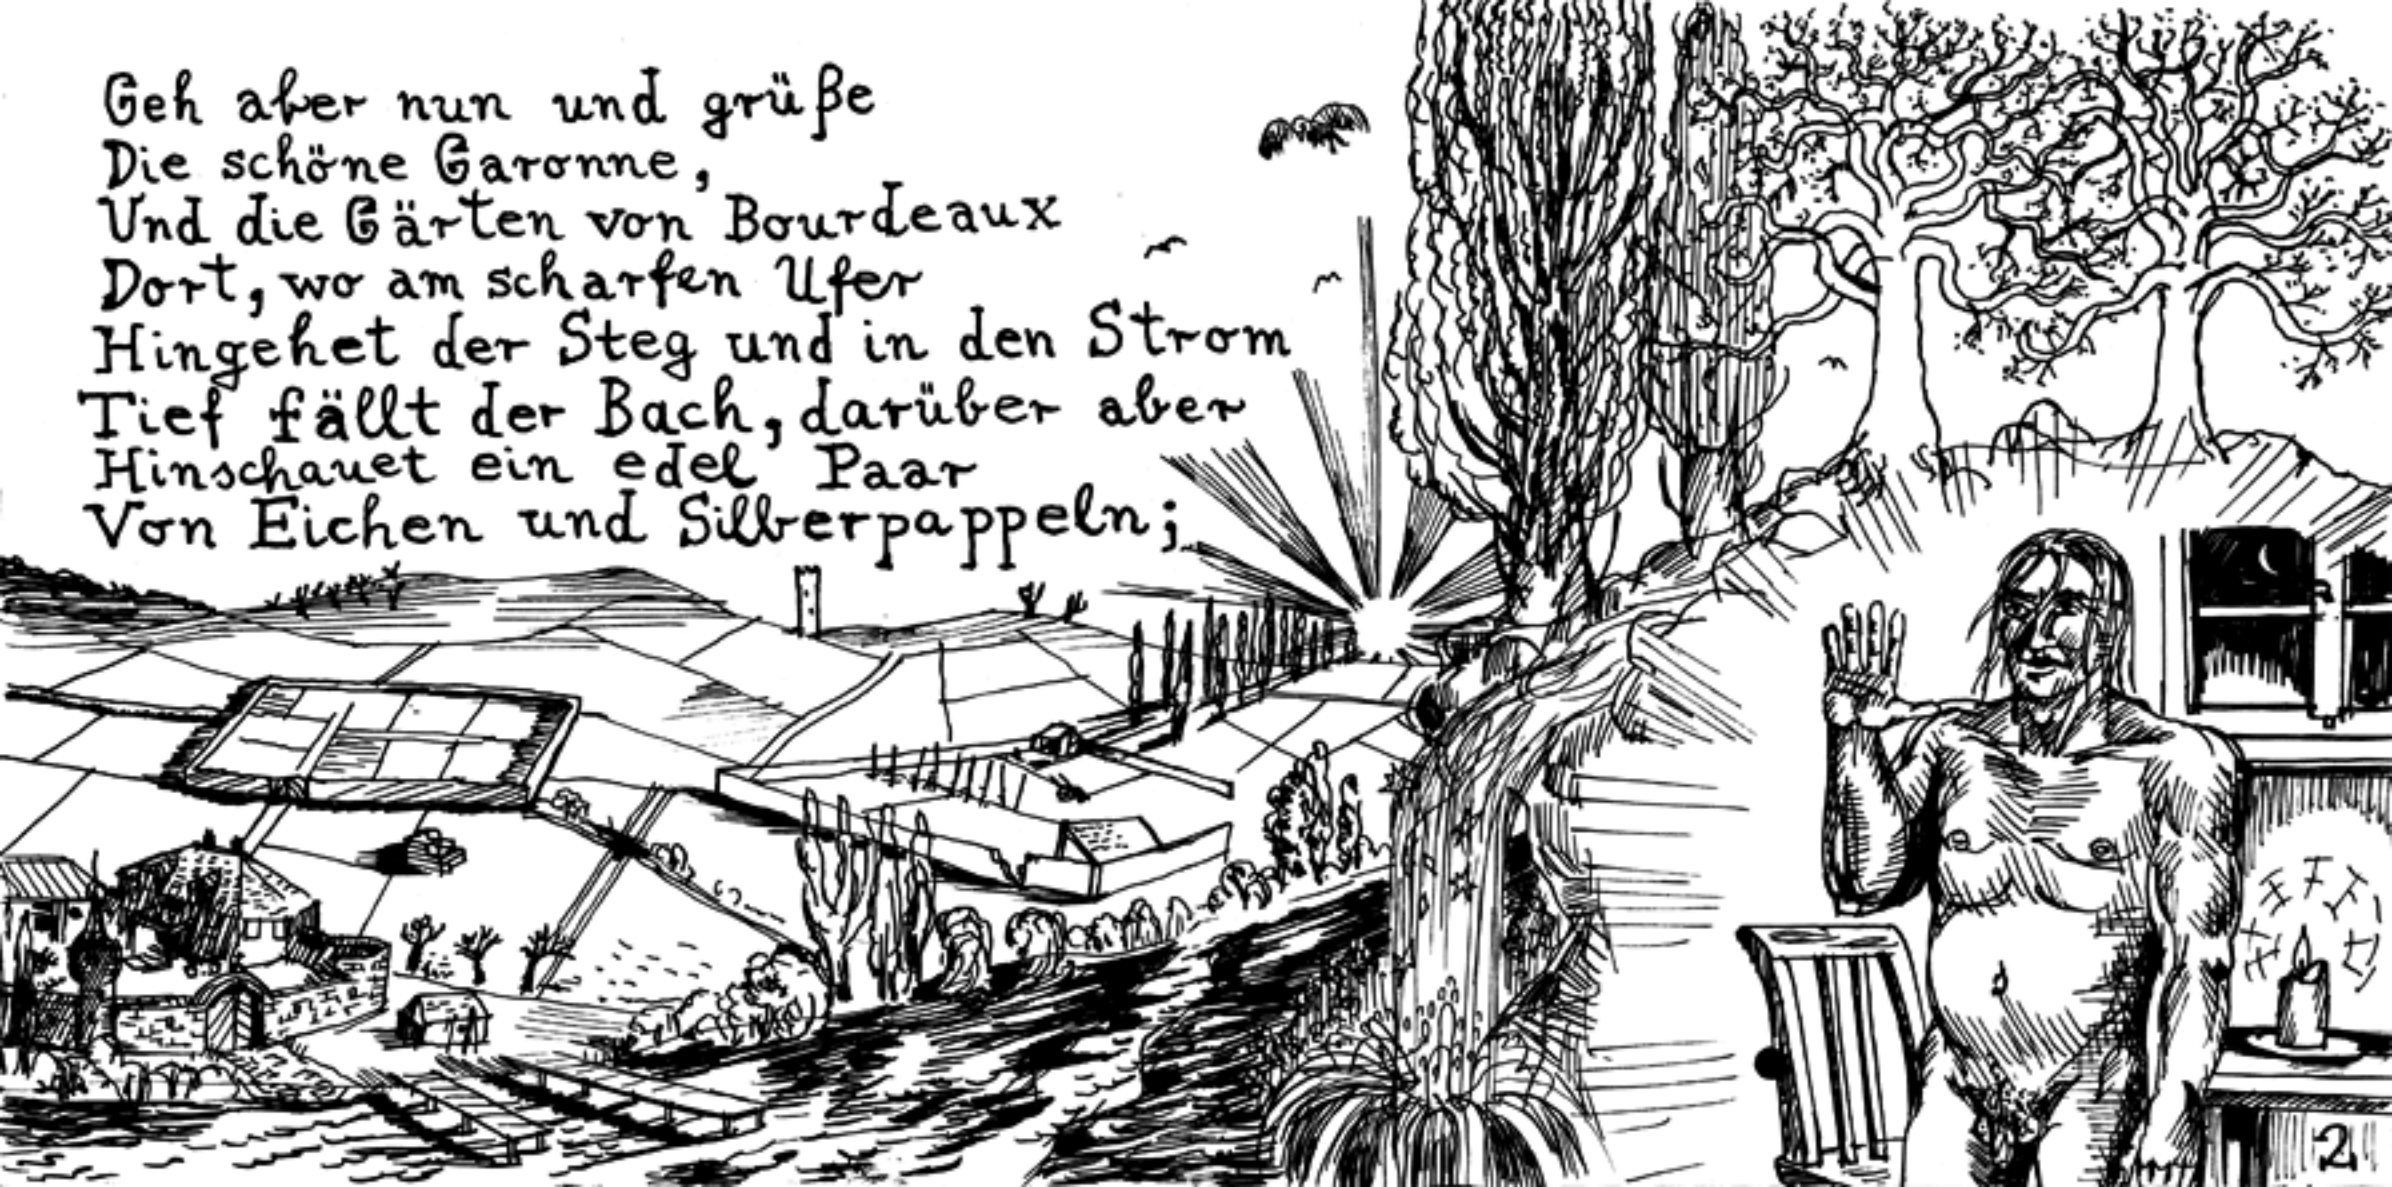 Geh aber nun und grüße
Die schöne Garonne,
Und die Gärten von Bourdeaux
Dort, wo am scharfen Ufer
Hingehet der Steg und in den Strom
Tief fällt der Bach, darüber aber
Hinschauet ein edel Paar
Von Eichen und Silberpappeln;
2